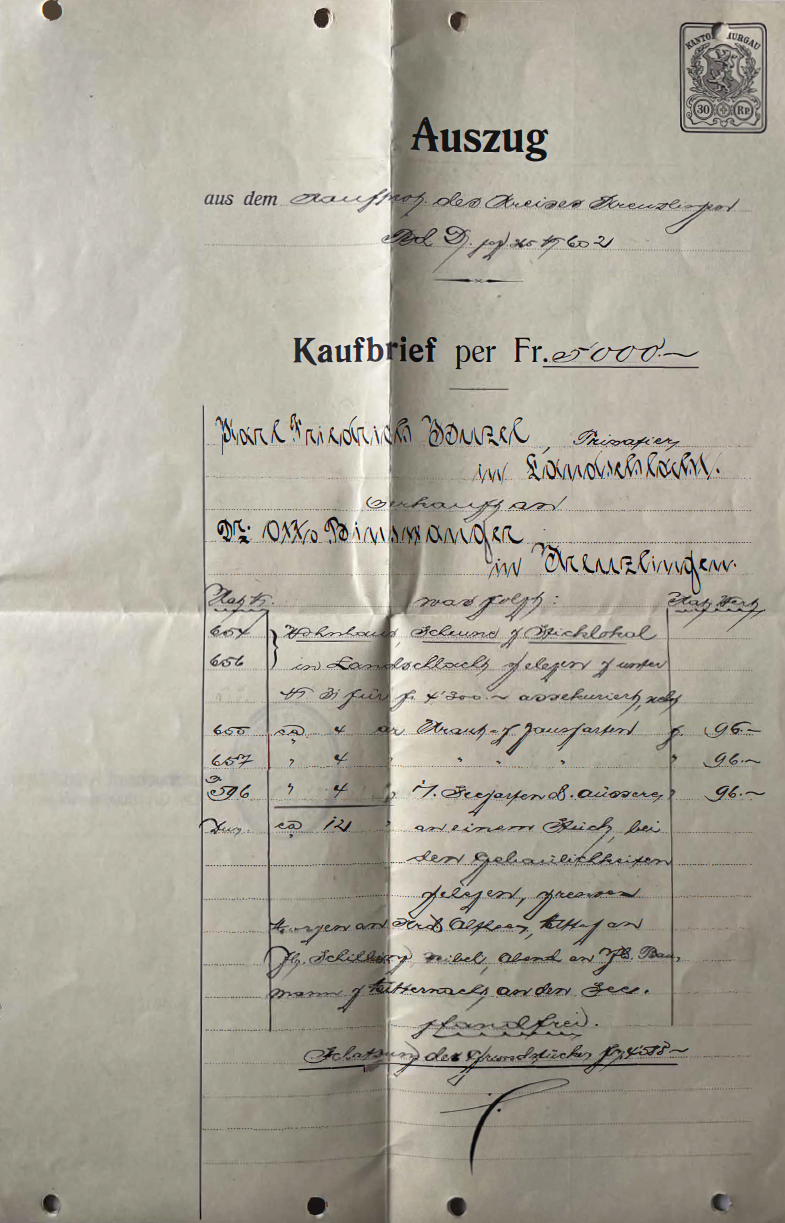 KANTON THURGAU
30 Rp
Auszug
aus dem Kaufprot. des Kreises Kreuzlingen
Bd D. pag. 265 № 602
Kaufbrief per Fr. 5000.~
Karl Friedrich Wenzel, Privatier,
in Landschlacht.
verkauft an
Dr. Otto Binswanger
in Kreuzlingen.
Kat. №. was folgt: Kat. Wert
654 Wohnhaus, Scheune & Sticklokal
656 in Landschlacht gelegen & unter
№ 31 für fr. 4'300.~ assekuriert, nebst
655 ca 4 ar Kraut- & Hausgarten f. 96.~
657 " 4 " " " " " 96.~
596 " 4 " i/. Seegarten d. äussere, " 96.~
Zus. ca 12 " an einem Stück, bei
den Gebäulichkeiten
gelegen, grenzen
Morgen an Altheer, Mittag an
Schilling, Abend an Jb. Bau-
mann & Mitternacht an den See.
pfandfrei.
Schatzung des Grundstückes fr. 4'588~